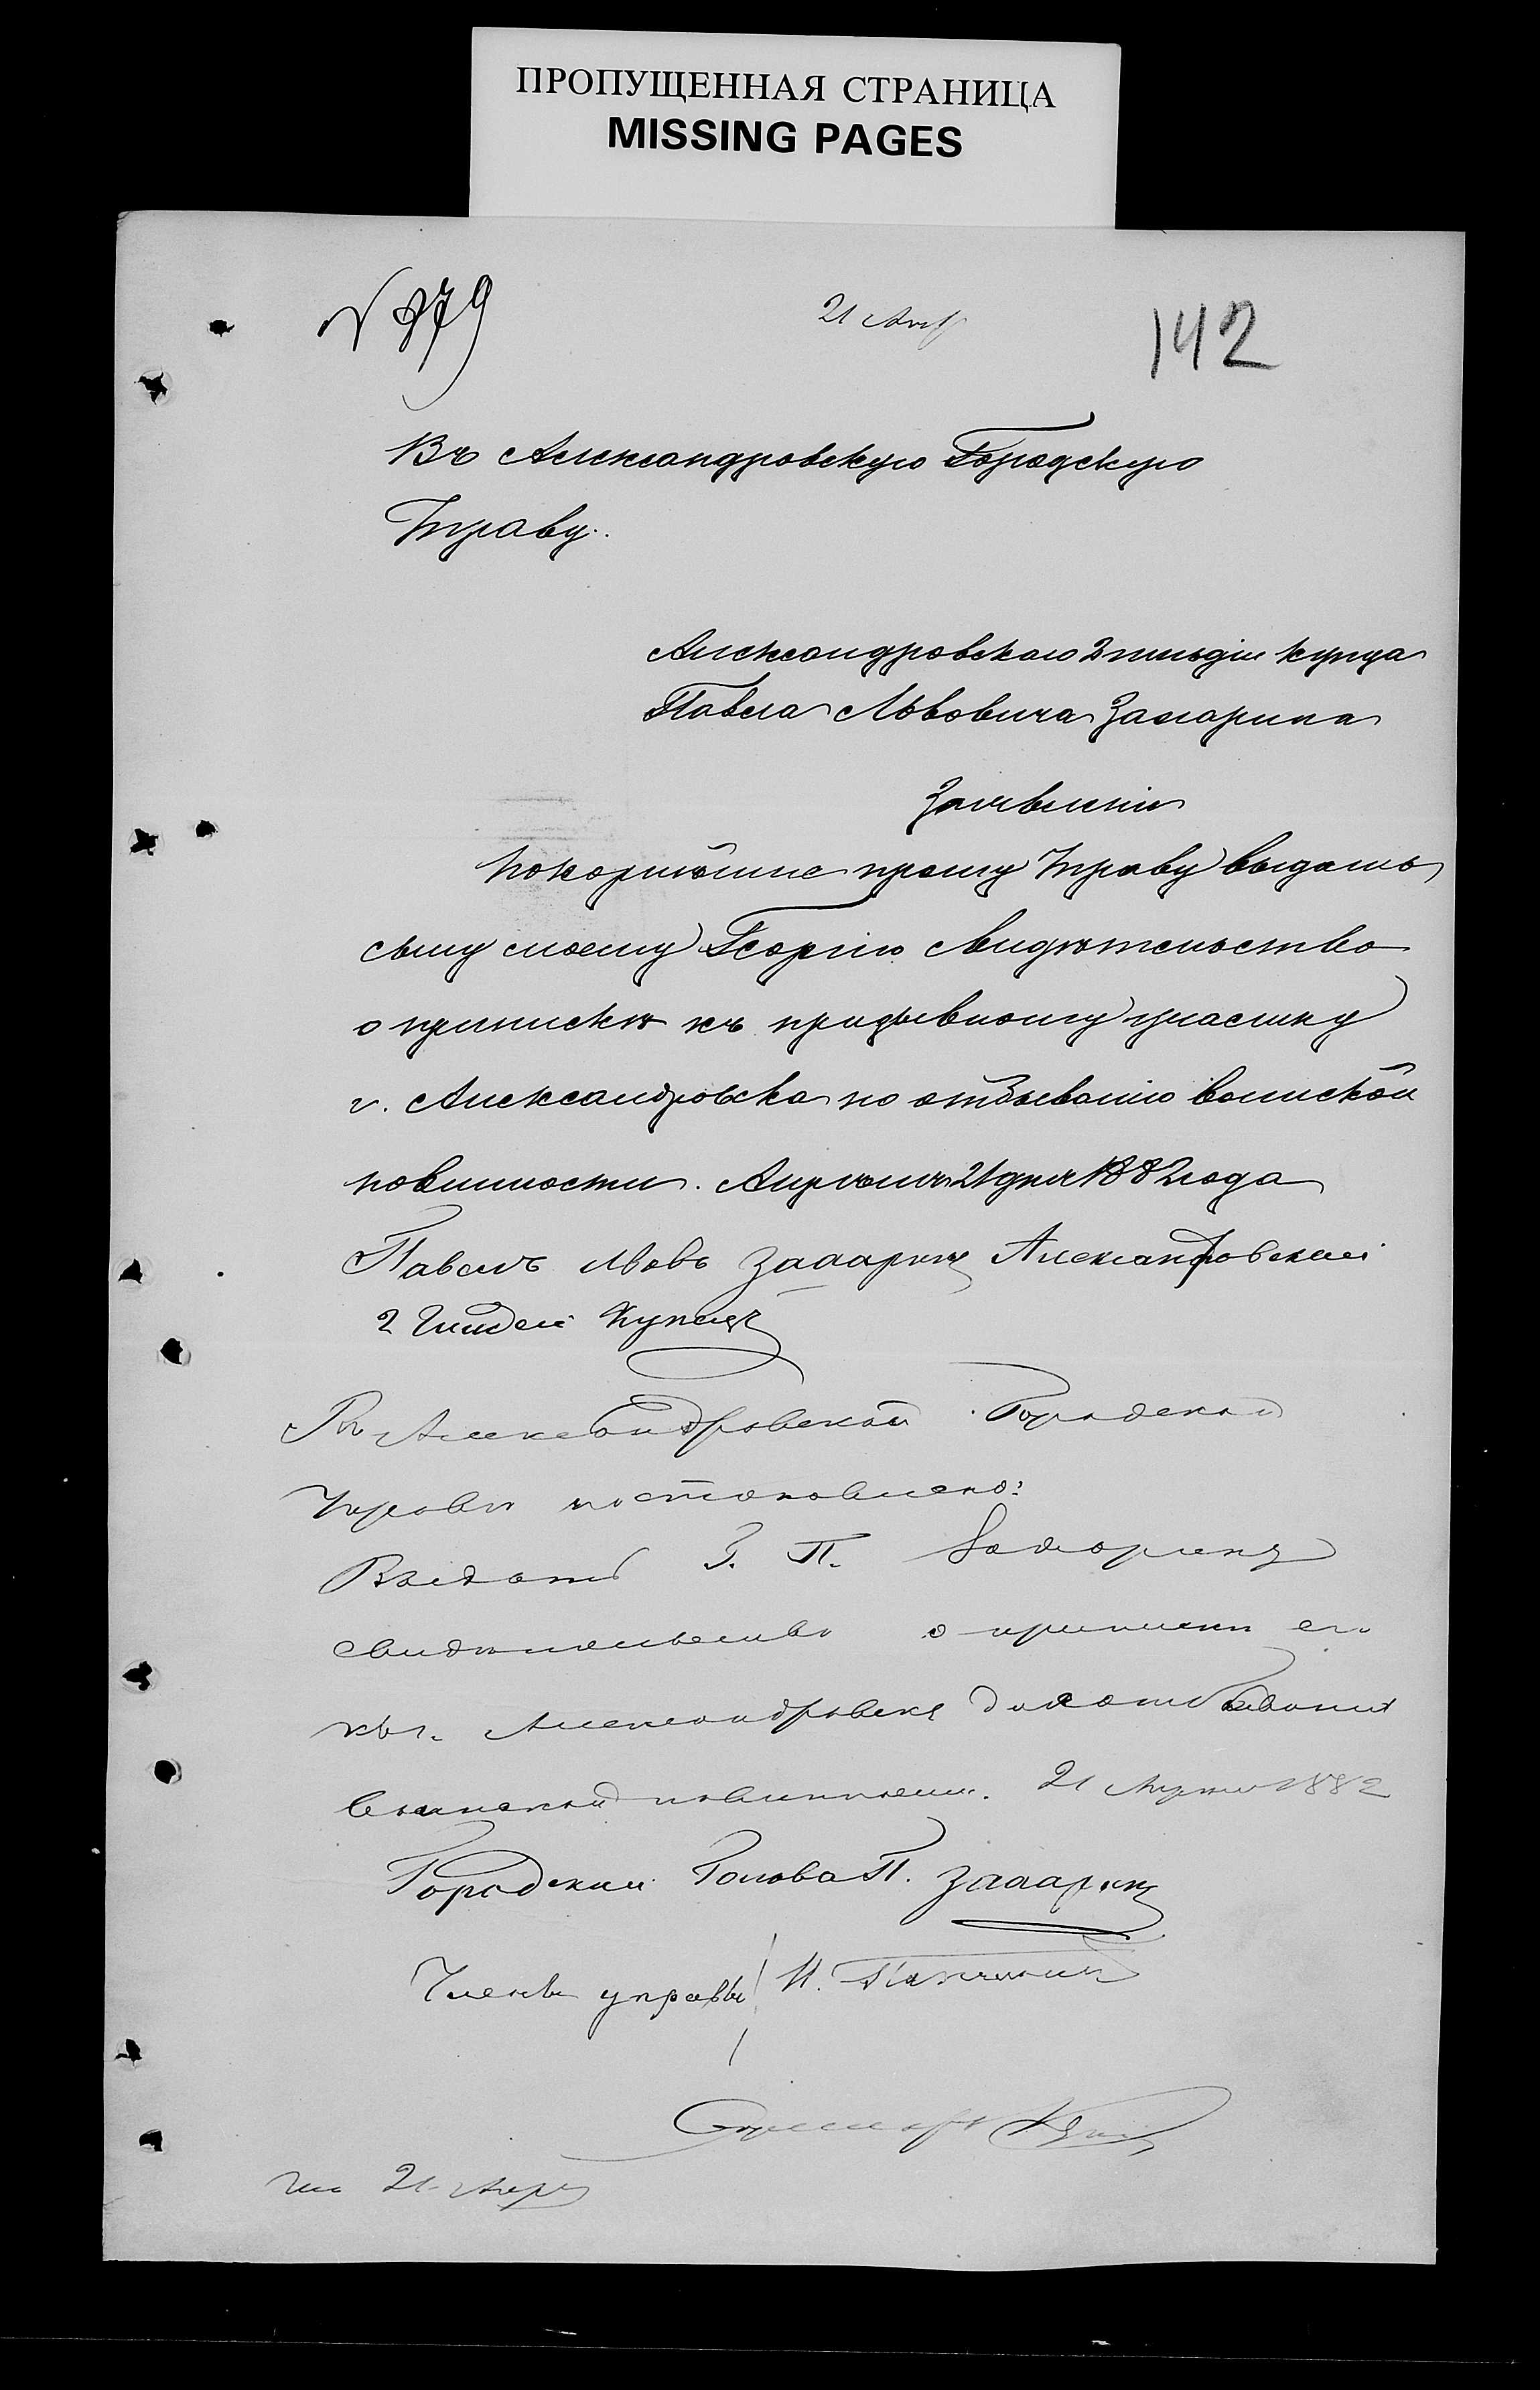 ПРОПУЩЕННАЯ СТРАНИЦА
MISSING PAGES
№ 879
21 Апр
142
Въ Александровскую Городскую
Управу.
Александровскаго 2 гильдіи купца
Павла Львовича Захарина
Заявленіе
Покорнѣйше прошу Управу выдать
сыну моему Георгію свидѣтельство
о припискѣ къ призывному участку
г. Александровска по отбыванію воинской
повинности. Апрѣля 21 дня 1882 года
Павелъ Львовъ Захаринъ Александровскій
2 Гильдеи Купецъ
Въ Александровской Городской
Управѣ постановлено:
Выдать Г. П. Захарину
свидѣтельство о припискѣ его
къ г. Александровску для отбыванія
воинской повинности. 21 Апрѣля 1882
Городской Голова П. Захаринъ
Члены управы
21 Апр